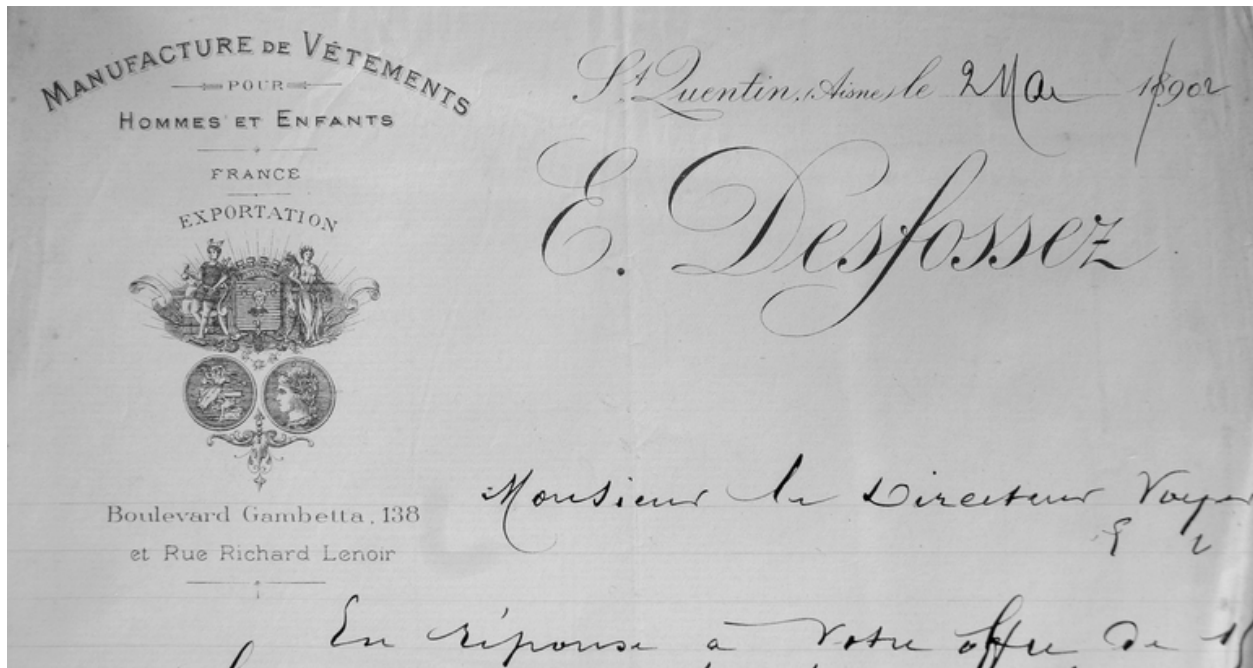 MANUFACTURE DE VÊTEMENTS
POUR
HOMMES ET ENFANTS
FRANCE
EXPORTATION
Boulevard Gambetta, 138
et Rue Richard Lenoir
St Quentin, (Aisne) le 2 Mai 1902
E. Desfossez
Monsieur le Directeur
En réponse à votre offre de